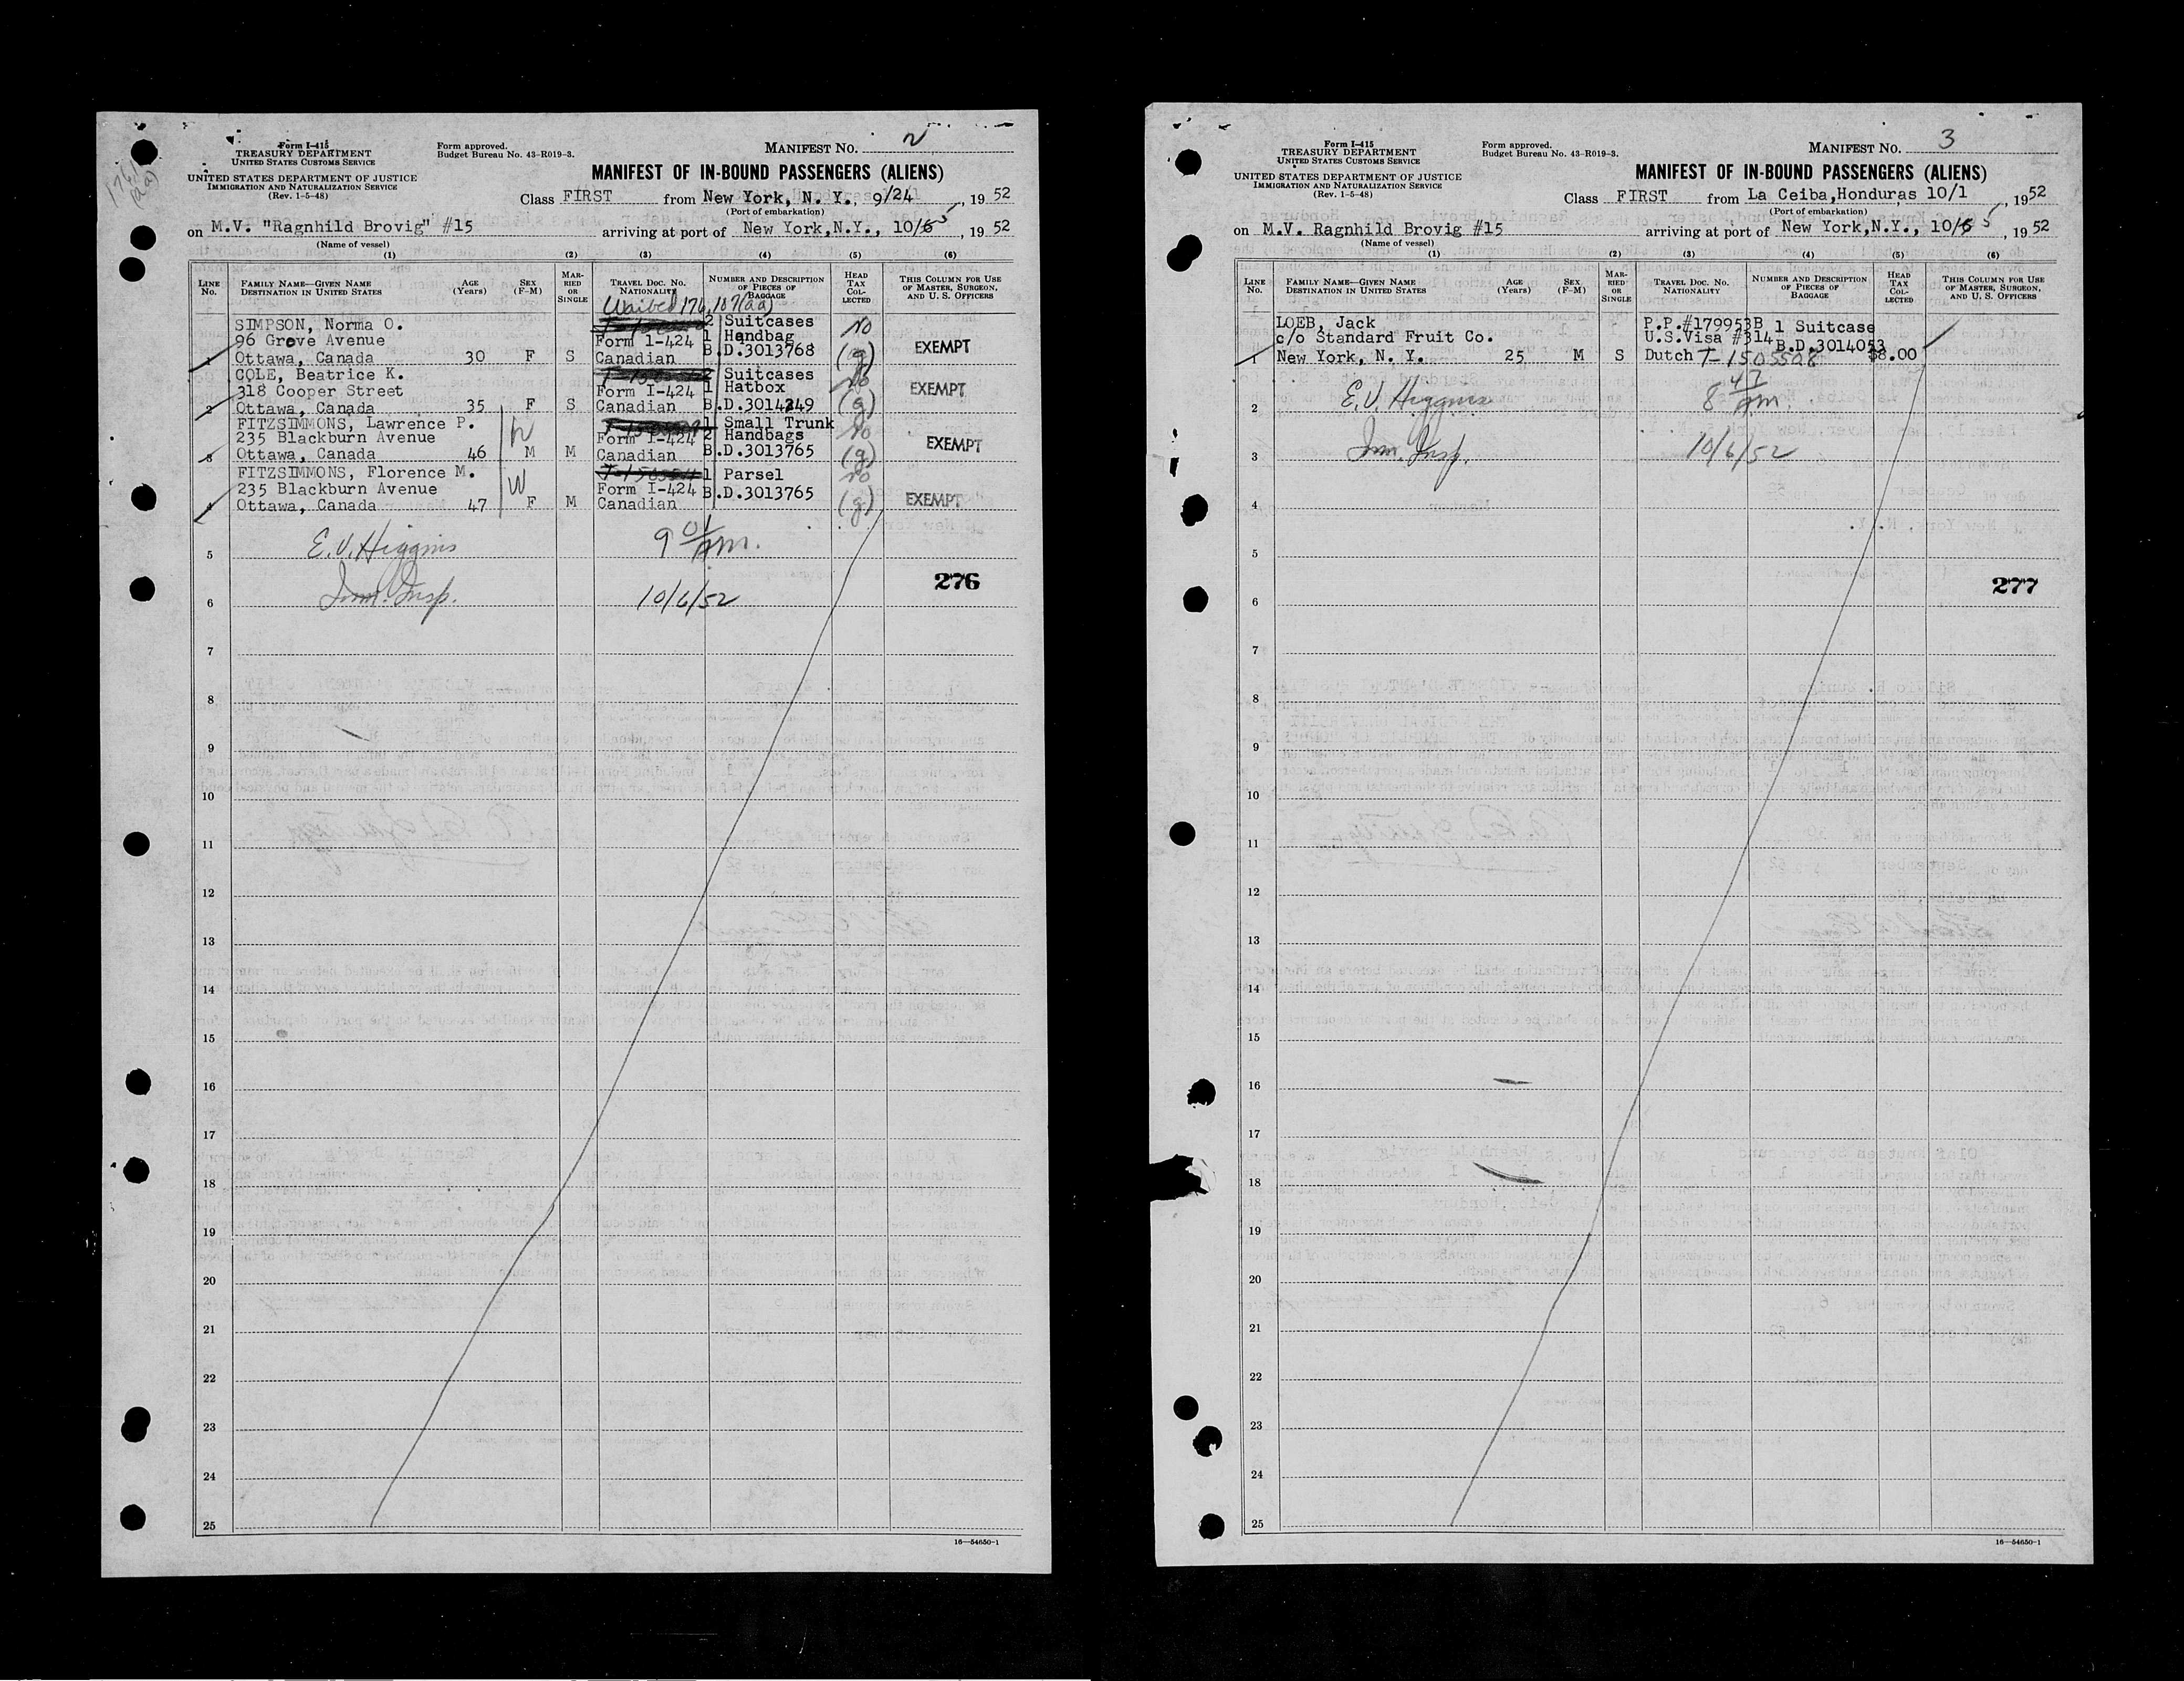 Form I-415
TREASURY DEPARTMENT
UNITED STATES CUSTOMS SERVICE
UNITED STATES DEPARTMENT OF JUSTICE
IMMIGRATION AND NATURALIZATION SERVICE
(Rev. 1-5-48)
Form approved.
Budget Bureau No. 43-R019-3.
MANIFEST NO. 2
MANIFEST OF IN-BOUND PASSENGERS (ALIENS)
Class FIRST from New York, N. Y., 9/24, 1952
(Port of embarkation)
on M.V. "Ragnhild Brovig" #15 arriving at port of New York,N.Y., 10/5, 1952
(Name of vessel)
(1) (2) (3) (4) (5) (6)
LINE No.
FAMILY NAME—GIVEN NAME
DESTINATION IN UNITED STATES
AGE (Years)
SEX (F-M)
MARRIED OR SINGLE
TRAVEL DOC. NO.
NATIONALITY
NUMBER AND DESCRIPTION OF PIECES OF BAGGAGE
HEAD TAX COLLECTED
THIS COLUMN FOR USE OF MASTER, SURGEON, AND U. S. OFFICERS
Waived 176.107(aa)
SIMPSON, Norma O. 2 Suitcases No
96 Grove Avenue Form 1-424 1 Handbag
1 Ottawa, Canada 30 F S Canadian B.D.3013768 (g) EXEMPT
COLE, Beatrice K. 2 Suitcases No
318 Cooper Street Form I-424 1 Hatbox EXEMPT
2 Ottawa, Canada 35 F S Canadian B.D.3014249 (g)
FITZSIMMONS, Lawrence P. W 1 Small Trunk No
235 Blackburn Avenue Form I-424 2 Handbags
3 Ottawa, Canada 46 M M Canadian B.D.3013765 (g) EXEMPT
FITZSIMMONS, Florence M. W 1 Parsel no
235 Blackburn Avenue Form I-424 B.D.3013765
4 Ottawa, Canada 47 F M Canadian (g) EXEMPT
5 E. V. Higgins 9 01 AM.
276
6 Imm. Insp. 10/6/52
7
8
9
10
11
12
13
14
15
16
17
18
19
20
21
22
23
24
25
16—54650-1
Form I-415
TREASURY DEPARTMENT
UNITED STATES CUSTOMS SERVICE
UNITED STATES DEPARTMENT OF JUSTICE
IMMIGRATION AND NATURALIZATION SERVICE
(Rev. 1-5-48)
Form approved.
Budget Bureau No. 43-R019-3.
MANIFEST NO. 3
MANIFEST OF IN-BOUND PASSENGERS (ALIENS)
Class FIRST from La Ceiba,Honduras 10/1, 1952
(Port of embarkation)
on M.V. Ragnhild Brovig #15 arriving at port of New York,N.Y., 10/5, 1952
(Name of vessel)
(1) (2) (3) (4) (5) (6)
LINE No.
FAMILY NAME—GIVEN NAME
DESTINATION IN UNITED STATES
AGE (Years)
SEX (F-M)
MARRIED OR SINGLE
TRAVEL DOC. NO.
NATIONALITY
NUMBER AND DESCRIPTION OF PIECES OF BAGGAGE
HEAD TAX COLLECTED
THIS COLUMN FOR USE OF MASTER, SURGEON, AND U. S. OFFICERS
LOEB, Jack P.P.#179953B 1 Suitcase
c/o Standard Fruit Co. U.S.Visa #314 B.D.3014053
1 New York, N. Y. 25 M S Dutch T-1505508 $8.00
2 E. V. Higgins 8 47 AM.
3 Imm. Insp. 10/6/52
4
5
277
6
7
8
9
10
11
12
13
14
15
16
17
18
19
20
21
22
23
24
25
16—54650-1